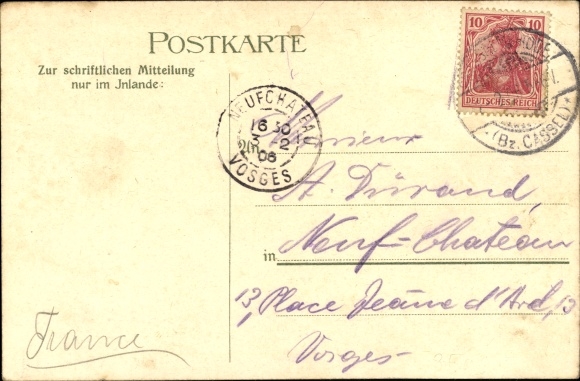 POSTKARTE
Zur schriftlichen Mitteilung
nur im Jnlande:
10 10
DEUTSCHES REICH
(Bz. CASSEL)
NEUFCHATEAU
16 30
3 -2
06
VOSGES
Monsieur
A. Dürand,
in Neuf-Chateau
13, Place Jeanne d'Ard, 13
Vosges-
France